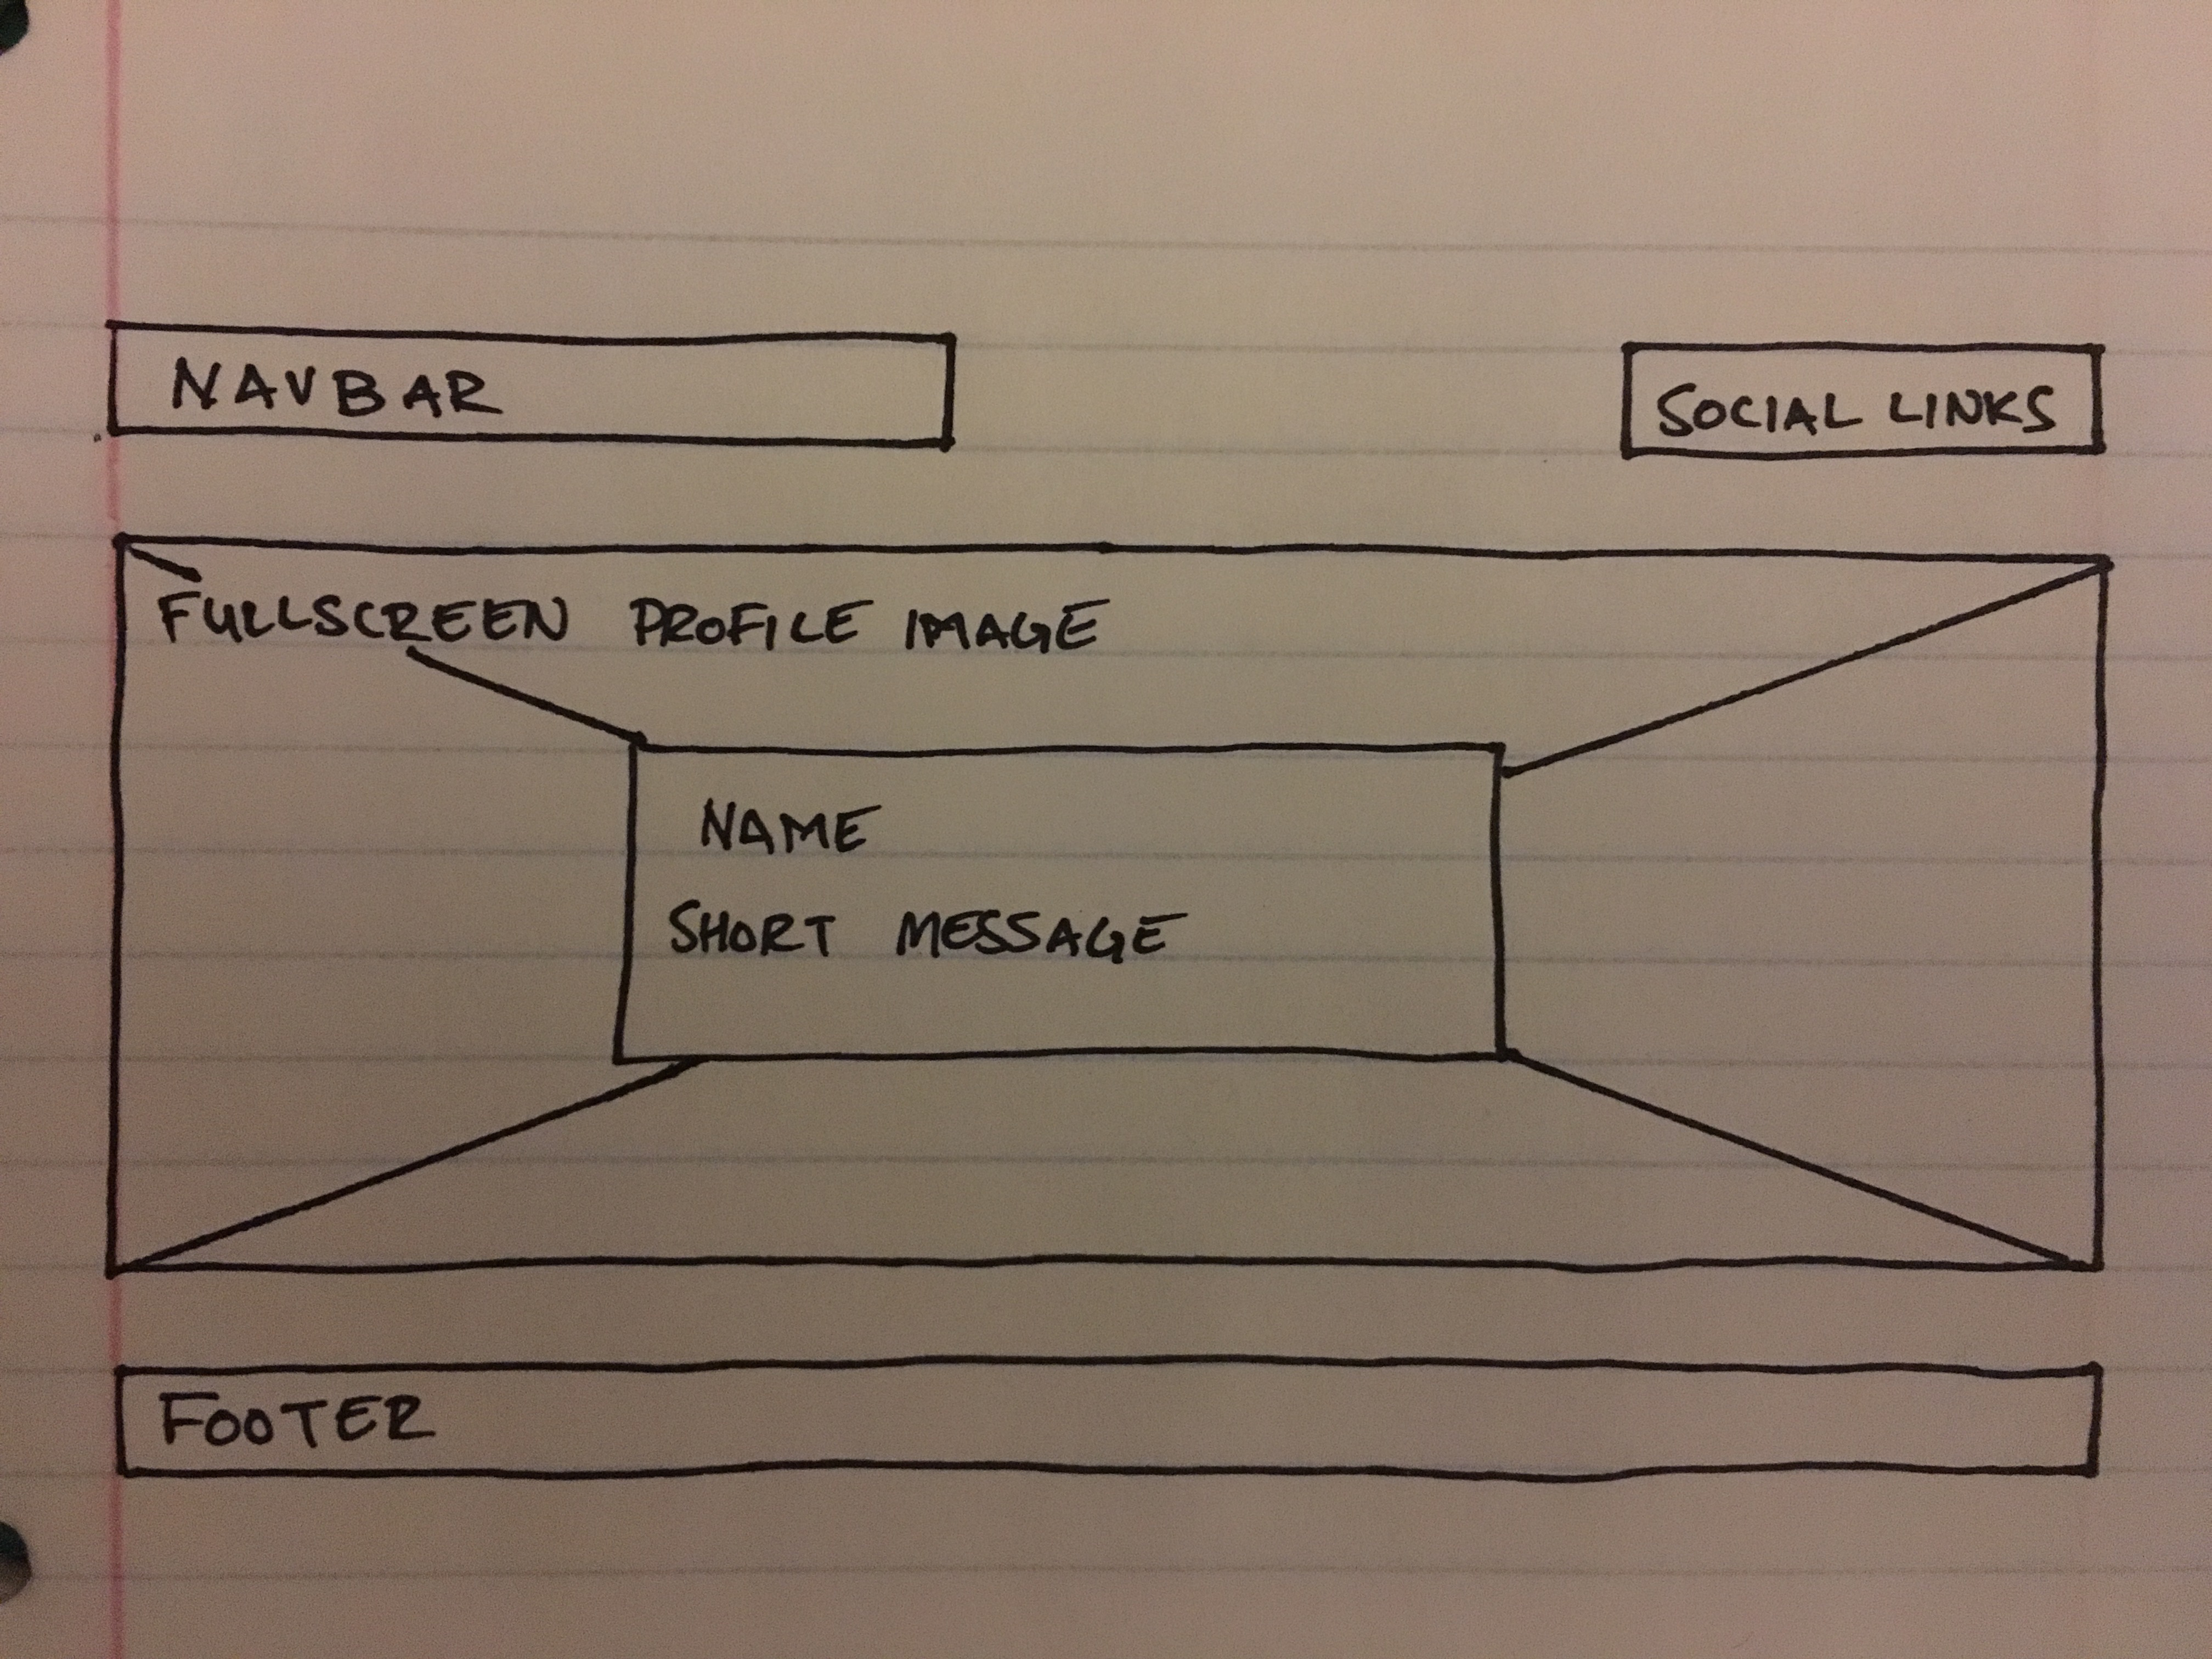 NAVBAR
SOCIAL LINKS
FULLSCREEN PROFILE IMAGE
NAME
SHORT MESSAGE
FOOTER